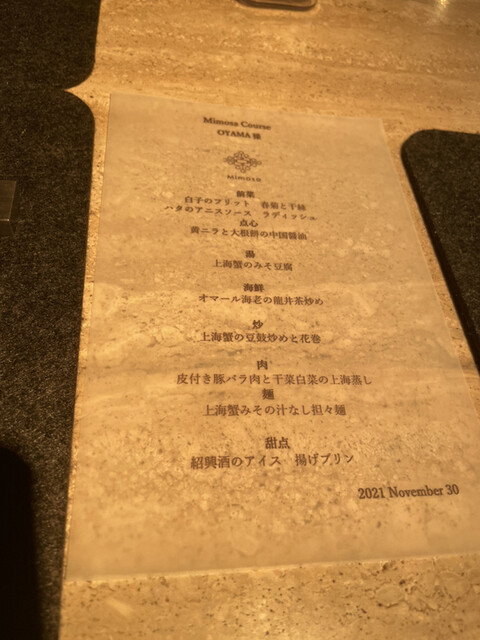 Mimosa Course
OYAMA 様
mimosa
前菜
白子のフリット 春菊と干柿
ハタのアニスソース ラディッシュ
点心
黄ニラと大根餅の中国醤油
湯
上海蟹のみそ豆腐
海鮮
オマール海老の龍井茶炒め
炒
上海蟹の豆豉炒めと花巻
肉
皮付き豚バラ肉と干菜白菜の上海蒸し
麺
上海蟹みその汁なし担々麺
甜点
紹興酒のアイス 揚げプリン
2021 November 30